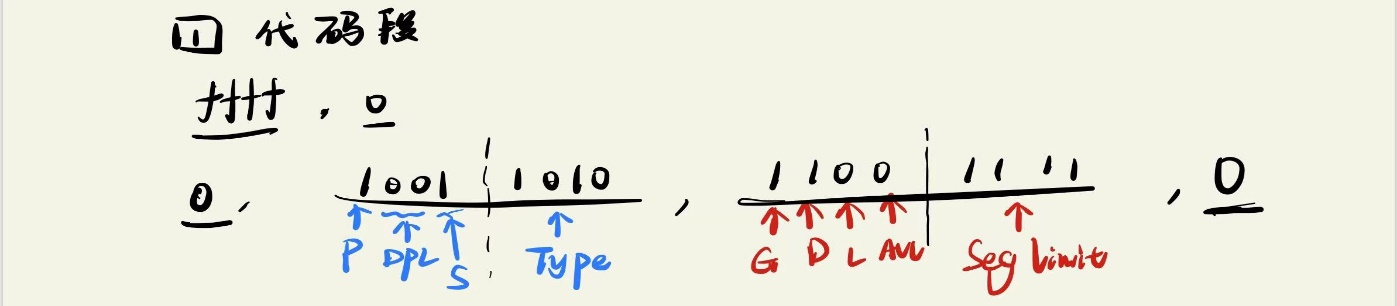 1 代码段
ffff , 0
0, 1001 1010 , 1100 1111 , 0
P DPL S Type G D L AVL Seg limit